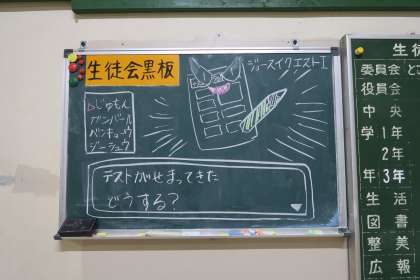 生徒会黒板
ジュースイクエストⅠ
▷じゅもん
ガンバール
ベンキョーウ
ジーシュウ
テストがせまってきた
どうする?
生徒
委員会 と
役員会
中央
学1年
2年
年3年
生活
図書
整美
広報